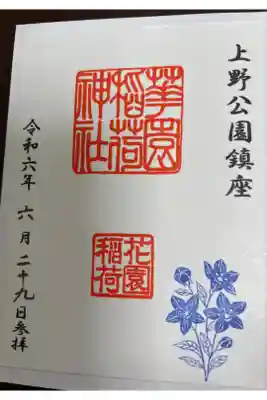 上野公園鎮座
華園
稻荷
神社
花園
稲荷
令和六年 六月二十九日参拝